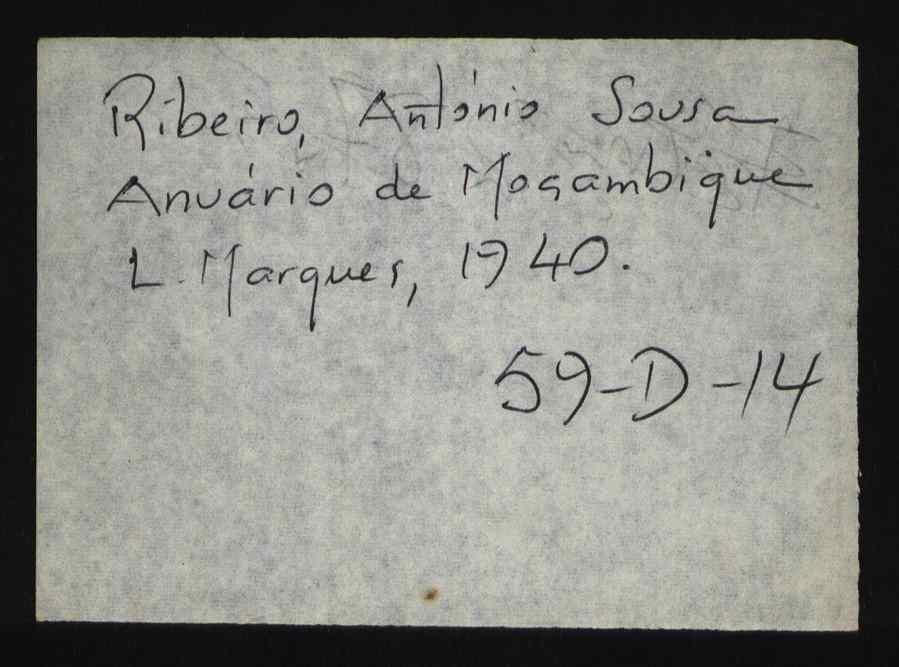 Ribeiro, António Sousa
Anuário de Moçambique
L. Marques, 1940.
59-D-14